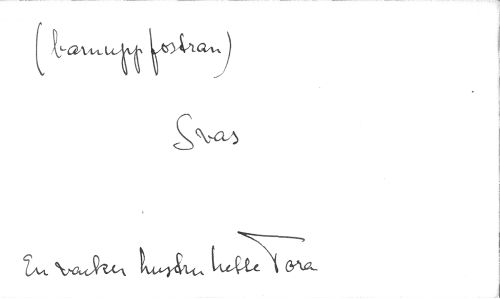 (barnuppfostran)
Svas
En vacker hustru hette Tora